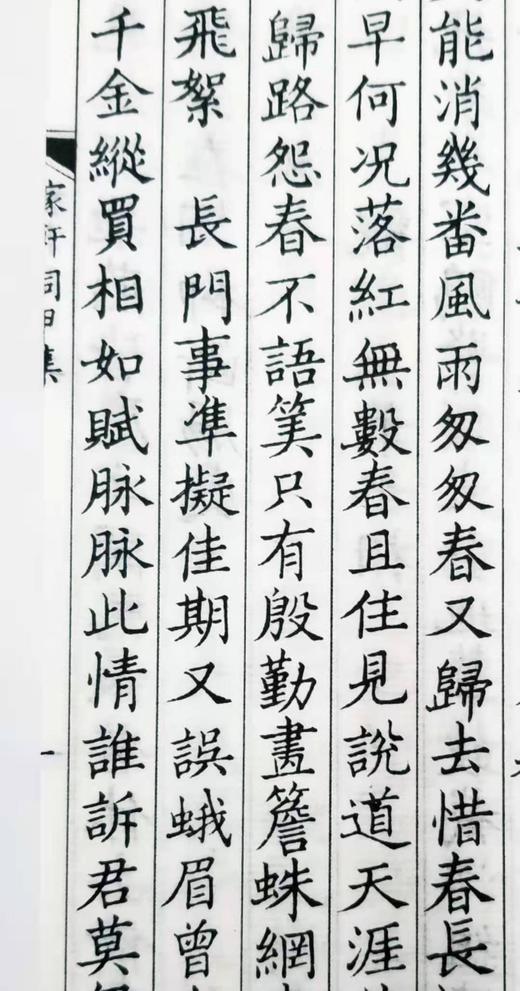 能消幾畨風雨匆匆春又歸去惜春長
早何况落紅無數春且住見說道天涯
歸路怨春不語筭只有殷勤畫簷蛛網
飛絮　長門事凖擬佳期又誤蛾眉曾
千金縱買相如賦脉脉此情誰訴君莫
稼軒詞甲集